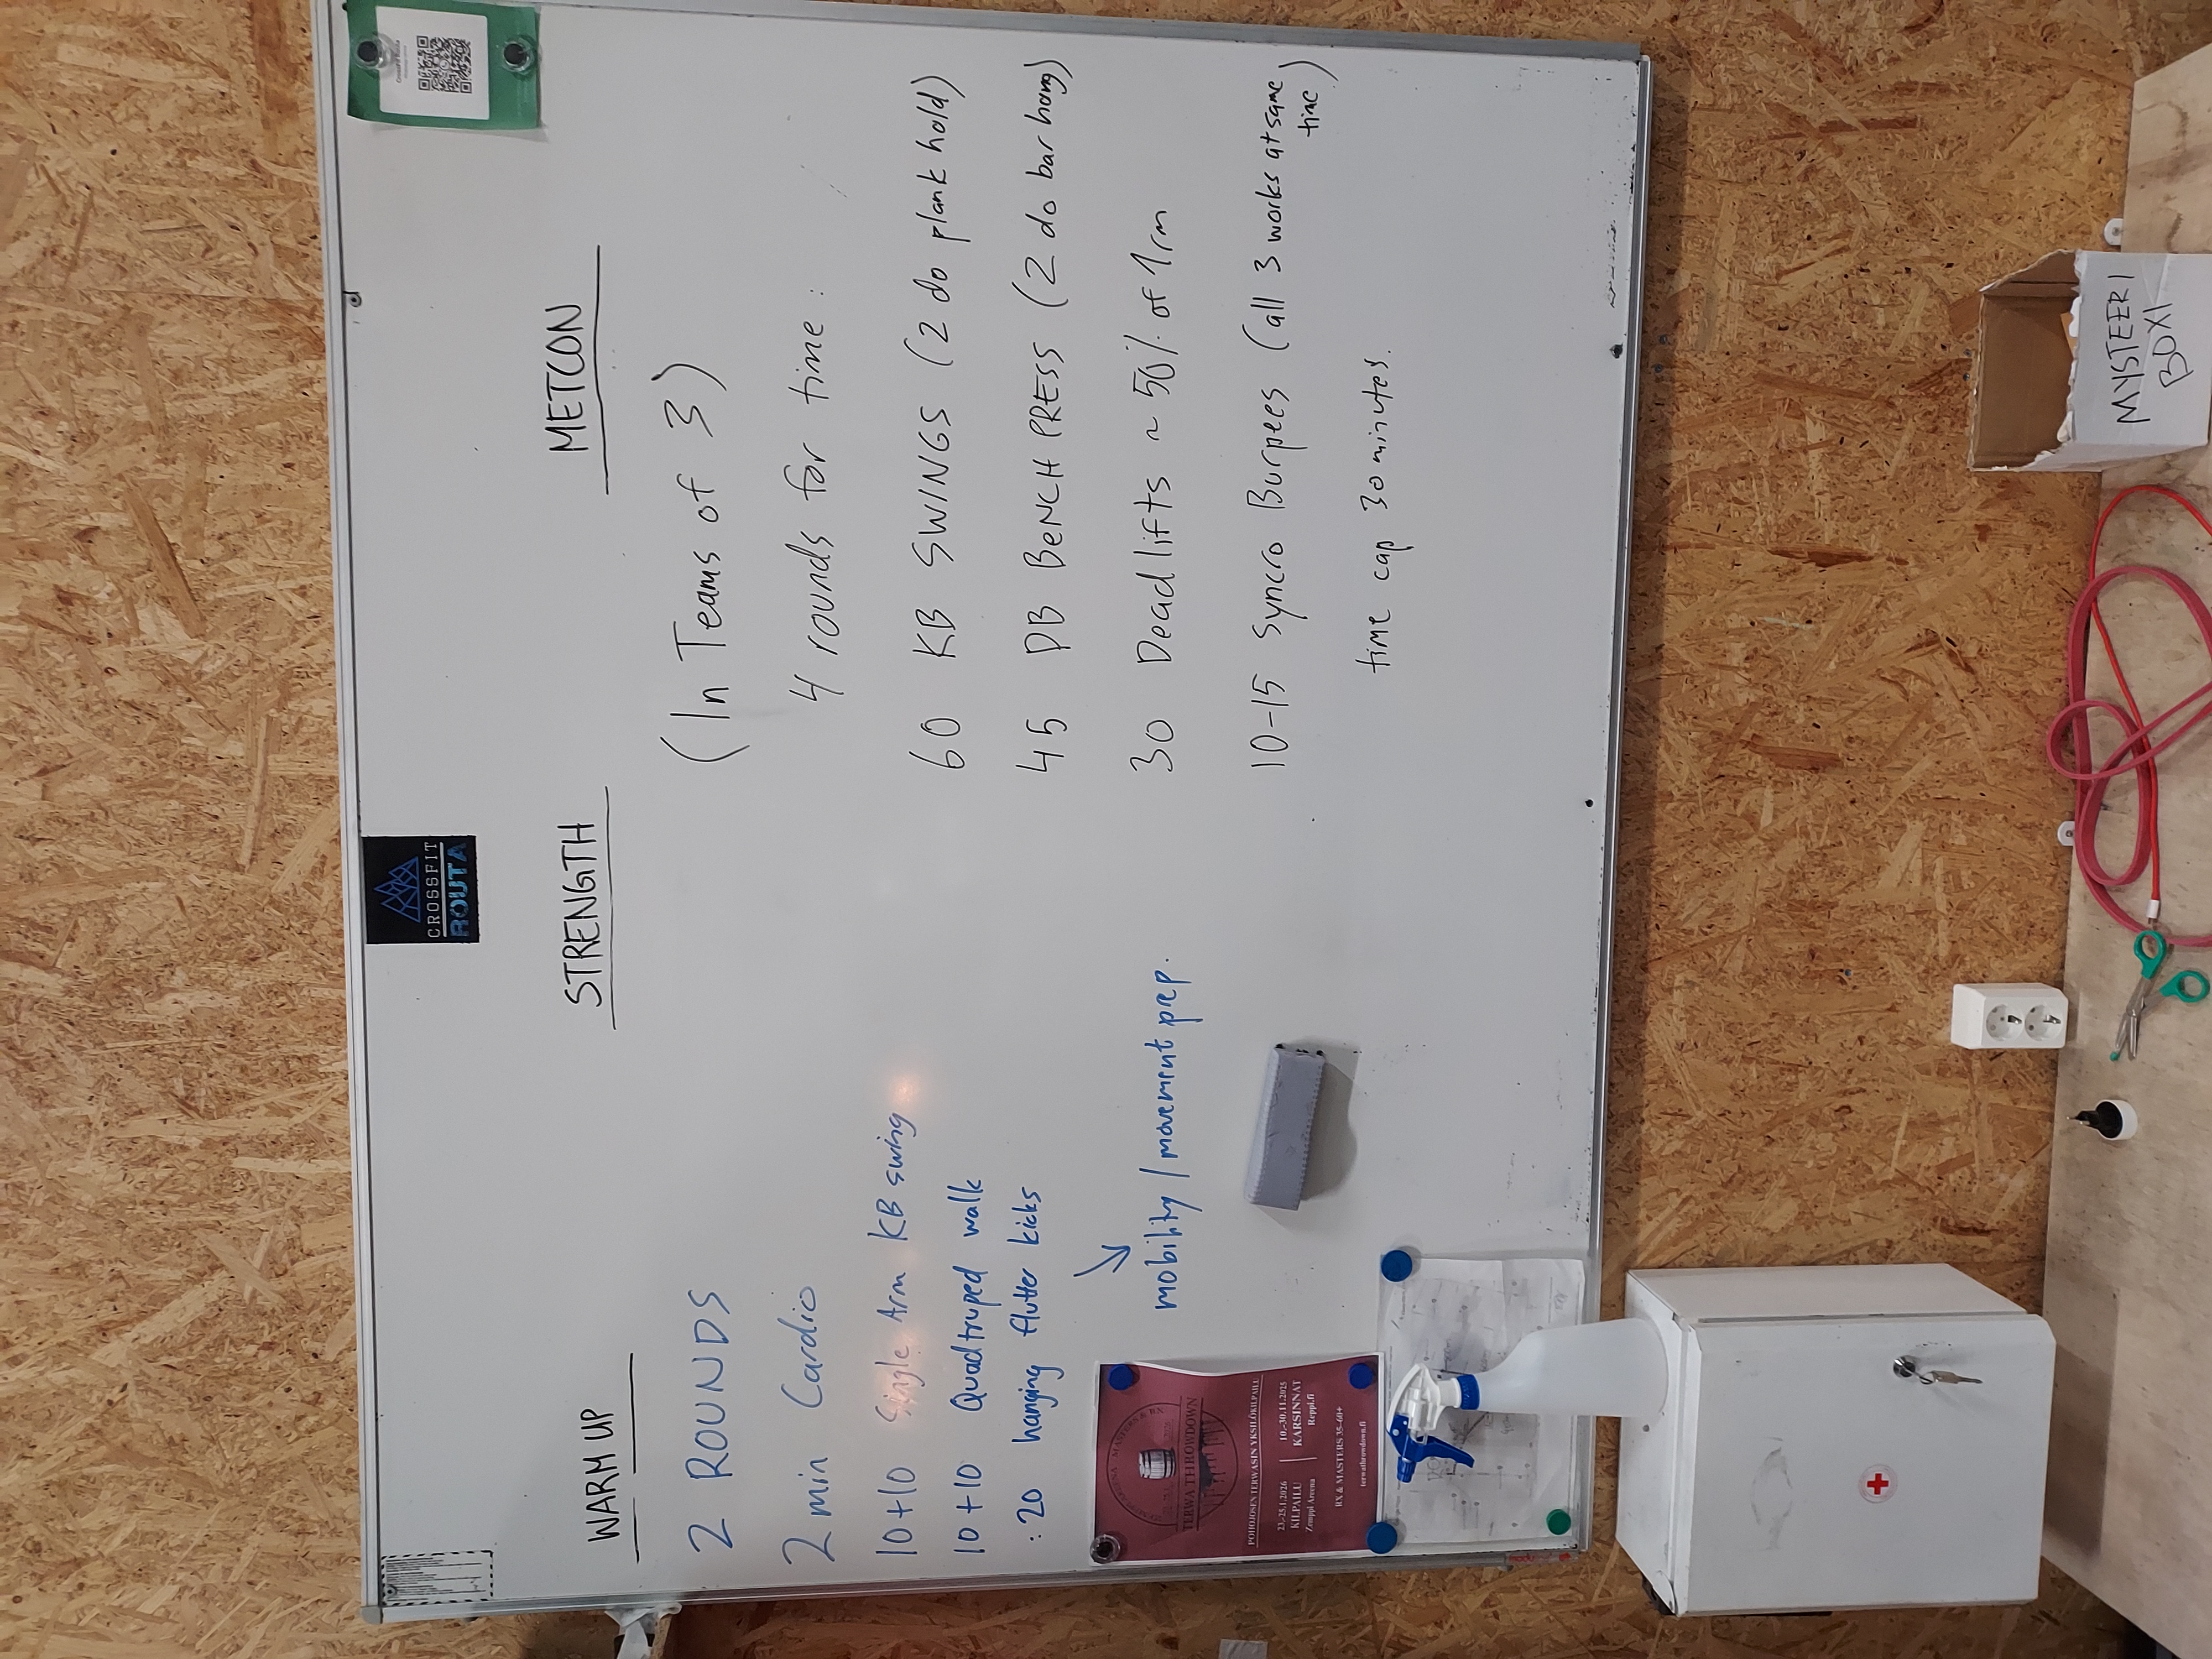 CROSSFIT
ROUTA
WARM UP
2 ROUNDS
2 min Cardio
10+10 Single Arm KB swing
10+10 Quadtruped walk
:20 hanging flutter kicks
mobility / movement prep.
STRENGTH
METCON
(In Teams of 3)
4 rounds for time:
60 KB SWINGS (2 do plank hold)
45 DB BENCH PRESS (2 do bar hang)
30 Deadlifts ~ 50% of 1rm
10-15 Syncro Burpees (all 3 works at same
time)
time cap 30 minutes.
TERWA THROWDOWN
POHJOISEN TERWASIN YKSILÖKILPAILU
23.-25.1.2026
KILPAILU
Zemppi Areena
10.-30.11.2025
KARSINNAT
Reppi.fi
RX & MASTERS 35-60+
terwathrowdown.fi
MYSTEERI
BOXI